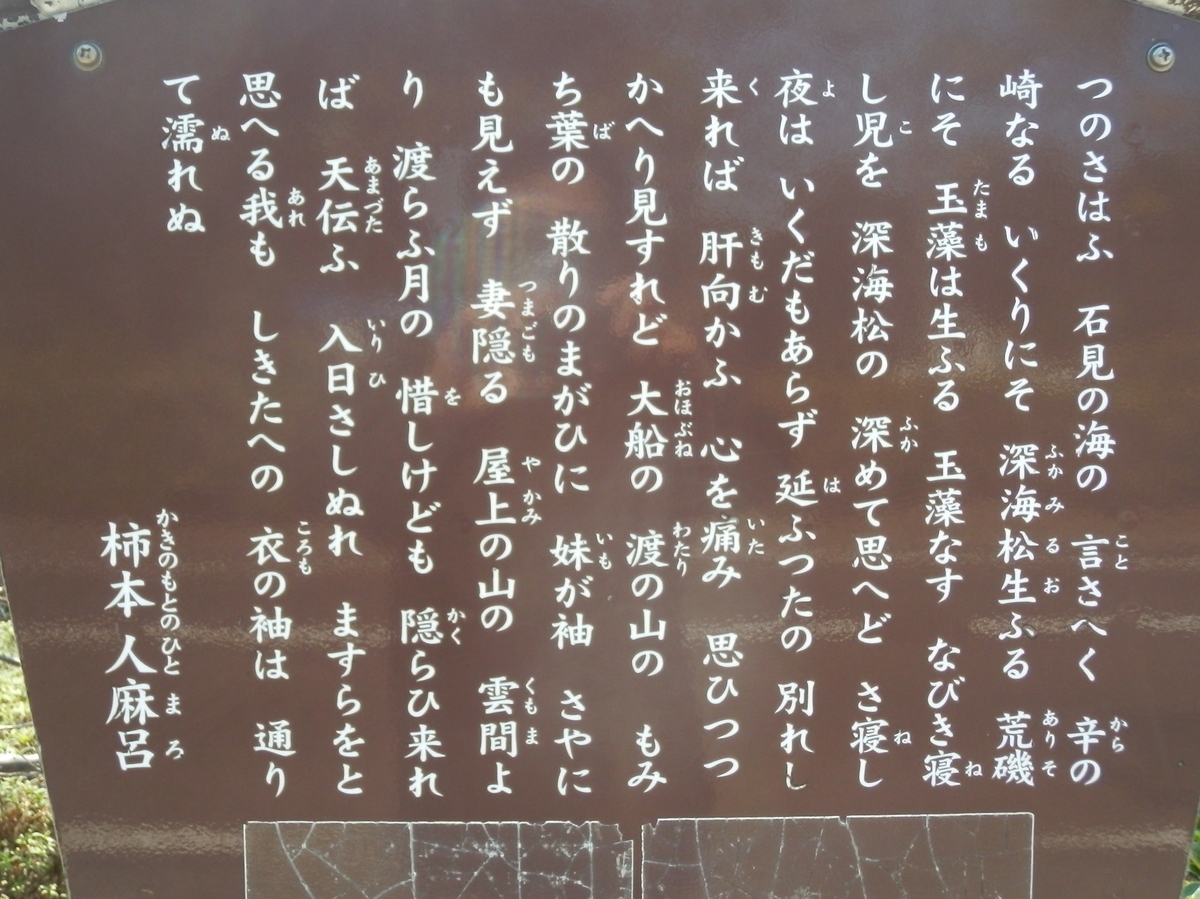 つのさはふ　石見の海の　言さへく　辛の
崎なる　いくりにそ　深海松生ふる　荒磯
にそ　玉藻は生ふる　玉藻なす　なびき寝
し児を　深海松の　深めて思へど　さ寝し
夜は　いくだもあらず　延ふつたの　別れし
来れば　肝向かふ　心を痛み　思ひつつ
かへり見すれど　大船の　渡の山の　もみ
ち葉の　散りのまがひに　妹が袖　さやに
も見えず　妻隠る　屋上の山の　雲間よ
り　渡らふ月の　惜しけども　隠らひ来れ
ば　天伝ふ　入日さしぬれ　ますらをと
思へる我も　しきたへの　衣の袖は　通り
て濡れぬ
柿本人麻呂